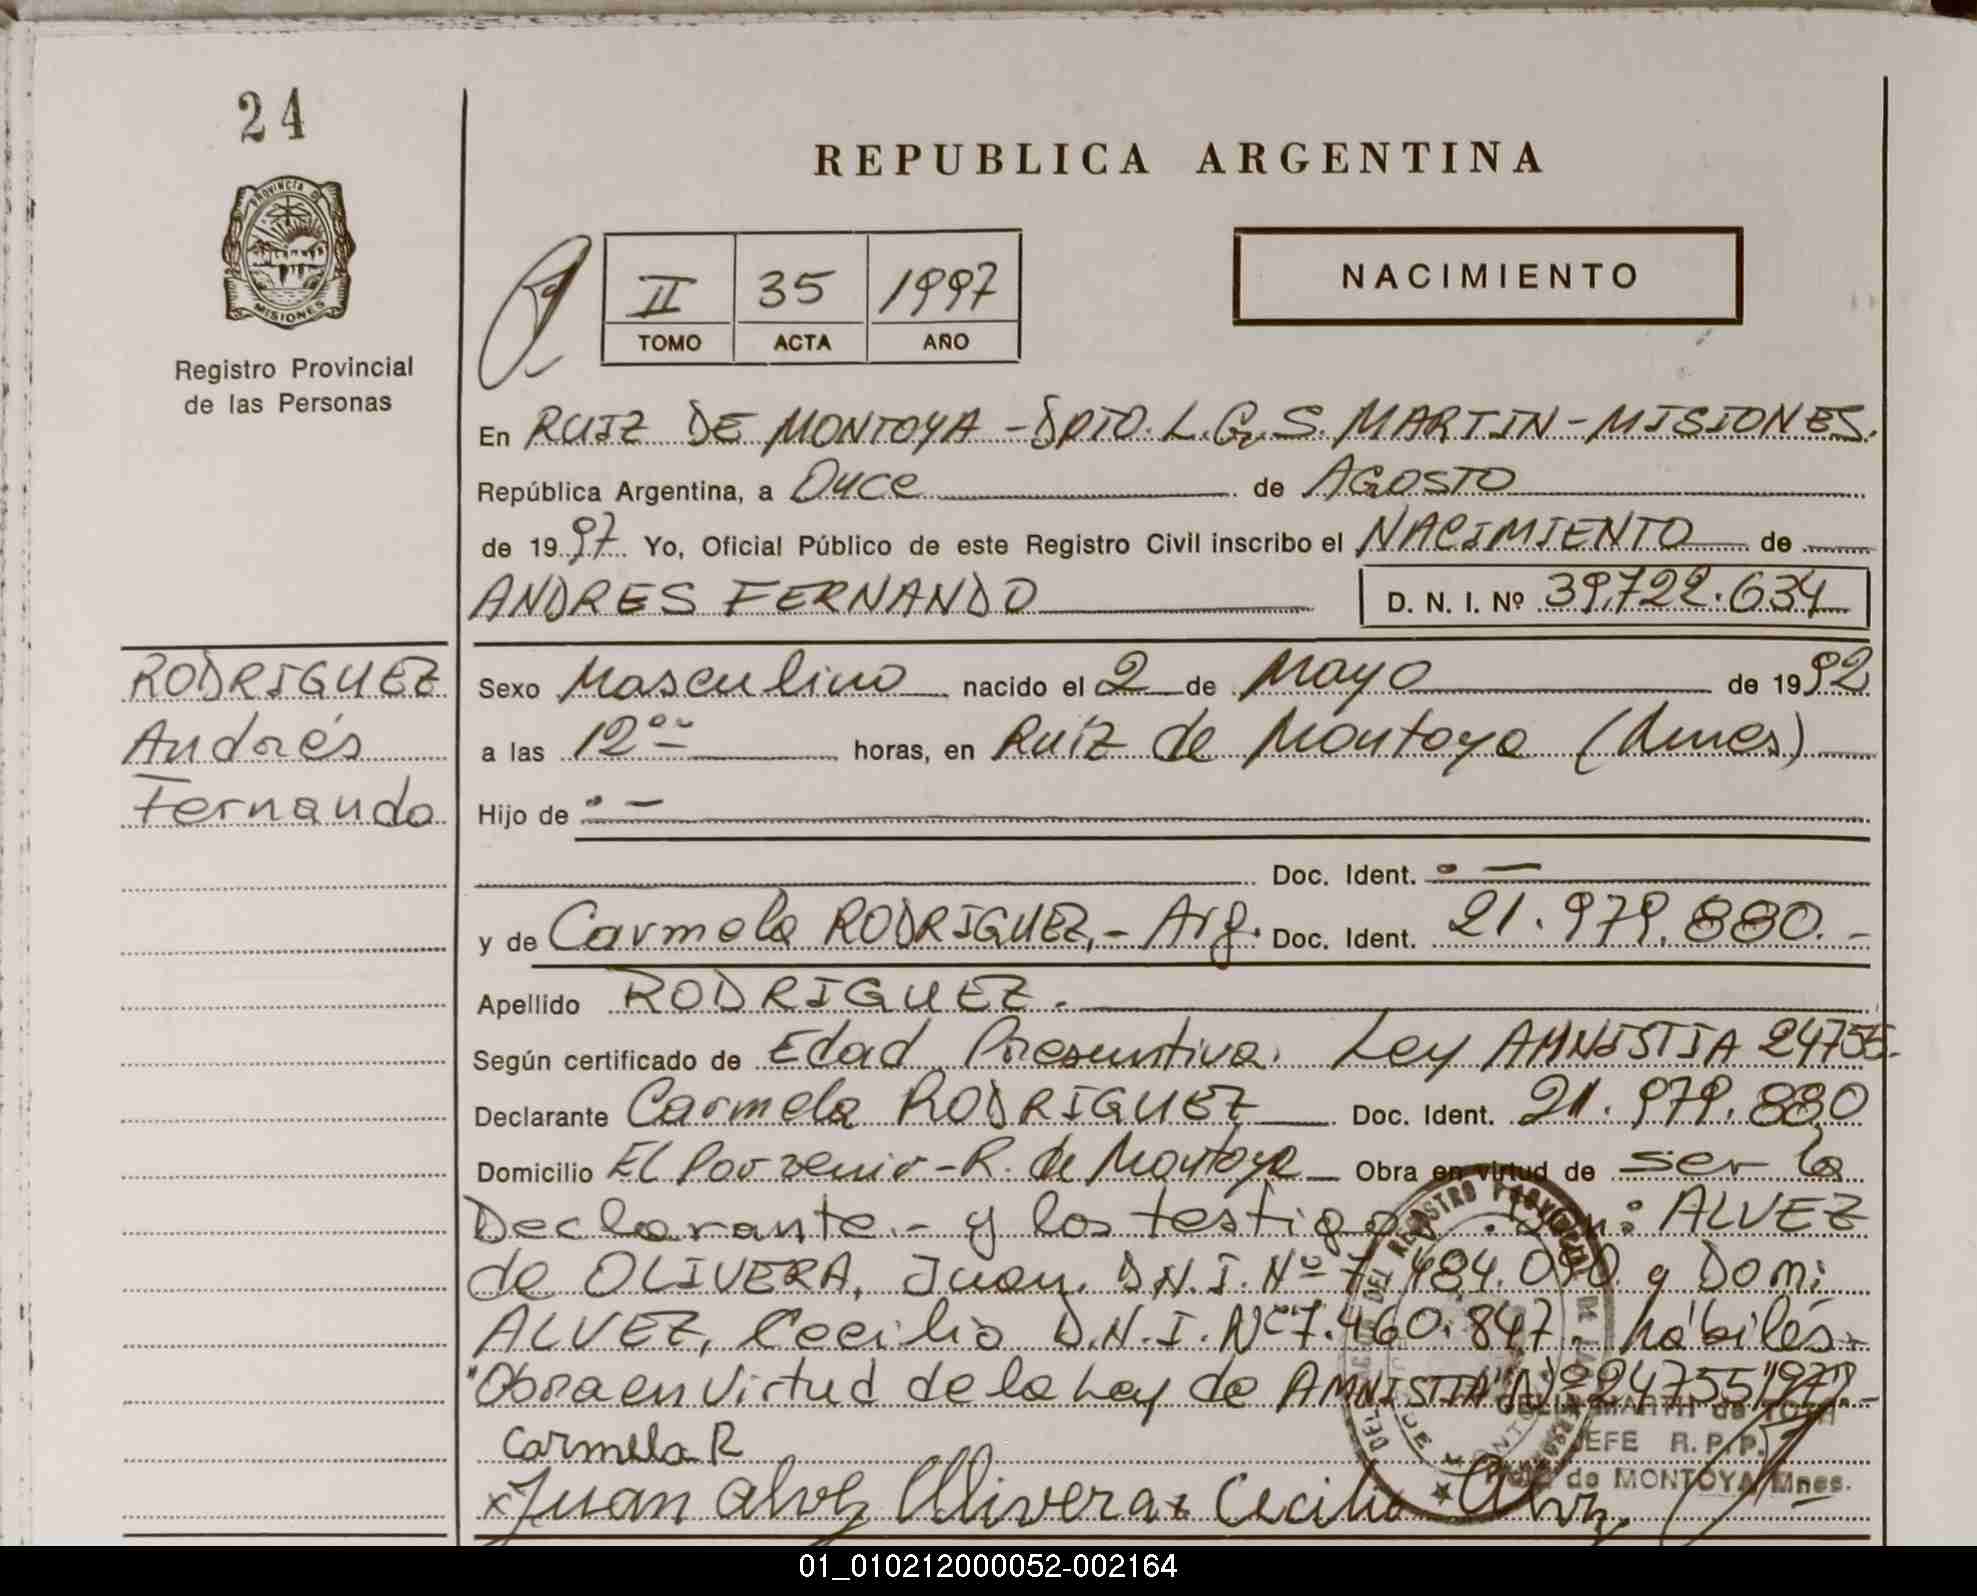 24
PROVINCIA DE
MISIONES
Registro Provincial
de las Personas
REPUBLICA ARGENTINA
II 35 1997
TOMO ACTA AÑO
NACIMIENTO
En RUIZ DE MONTOYA - DPTO. L.G.S. MARTIN - MISIONES.
República Argentina, a Once de AGOSTO
de 1997 Yo, Oficial Público de este Registro Civil inscribo el NACIMIENTO de
ANDRES FERNANDO D. N. I. Nº 39.722.634
RODRIGUEZ
Andrés
Fernando
Sexo Masculino nacido el 2 de Mayo de 1992
a las 12ºº horas, en Ruiz de Montoya (Mnes)
Hijo de . —
Doc. Ident. . —
y de Carmela RODRIGUEZ.- Arg. Doc. Ident. 21.979.880.-
Apellido RODRIGUEZ.
Según certificado de Edad Presuntiva. Ley AMNISTIA 24755.
Declarante Carmela RODRIGUEZ Doc. Ident. 21.979.880
Domicilio El Porvenir - R. de Montoya Obra en virtud de ser la
Declarante.- y los testigos : ALVEZ
de OLIVERA, Juan. D.N.I. Nº 7.484.090 y Domi
ALVEZ, Cecilio D.N.I. Nº 7.460.847 hábiles.-
"Obra en Virtud de la Ley de AMNISTIA" Nº 24755/97"-
DELIA MARTI de
JEFE R.P.P.
de MONTOYA Mnes.
DEL REGISTRO PROVINCIAL DE LAS
Carmela R
x Juan alvez Olivera x Cecilio Alvez
01_010212000052-002164